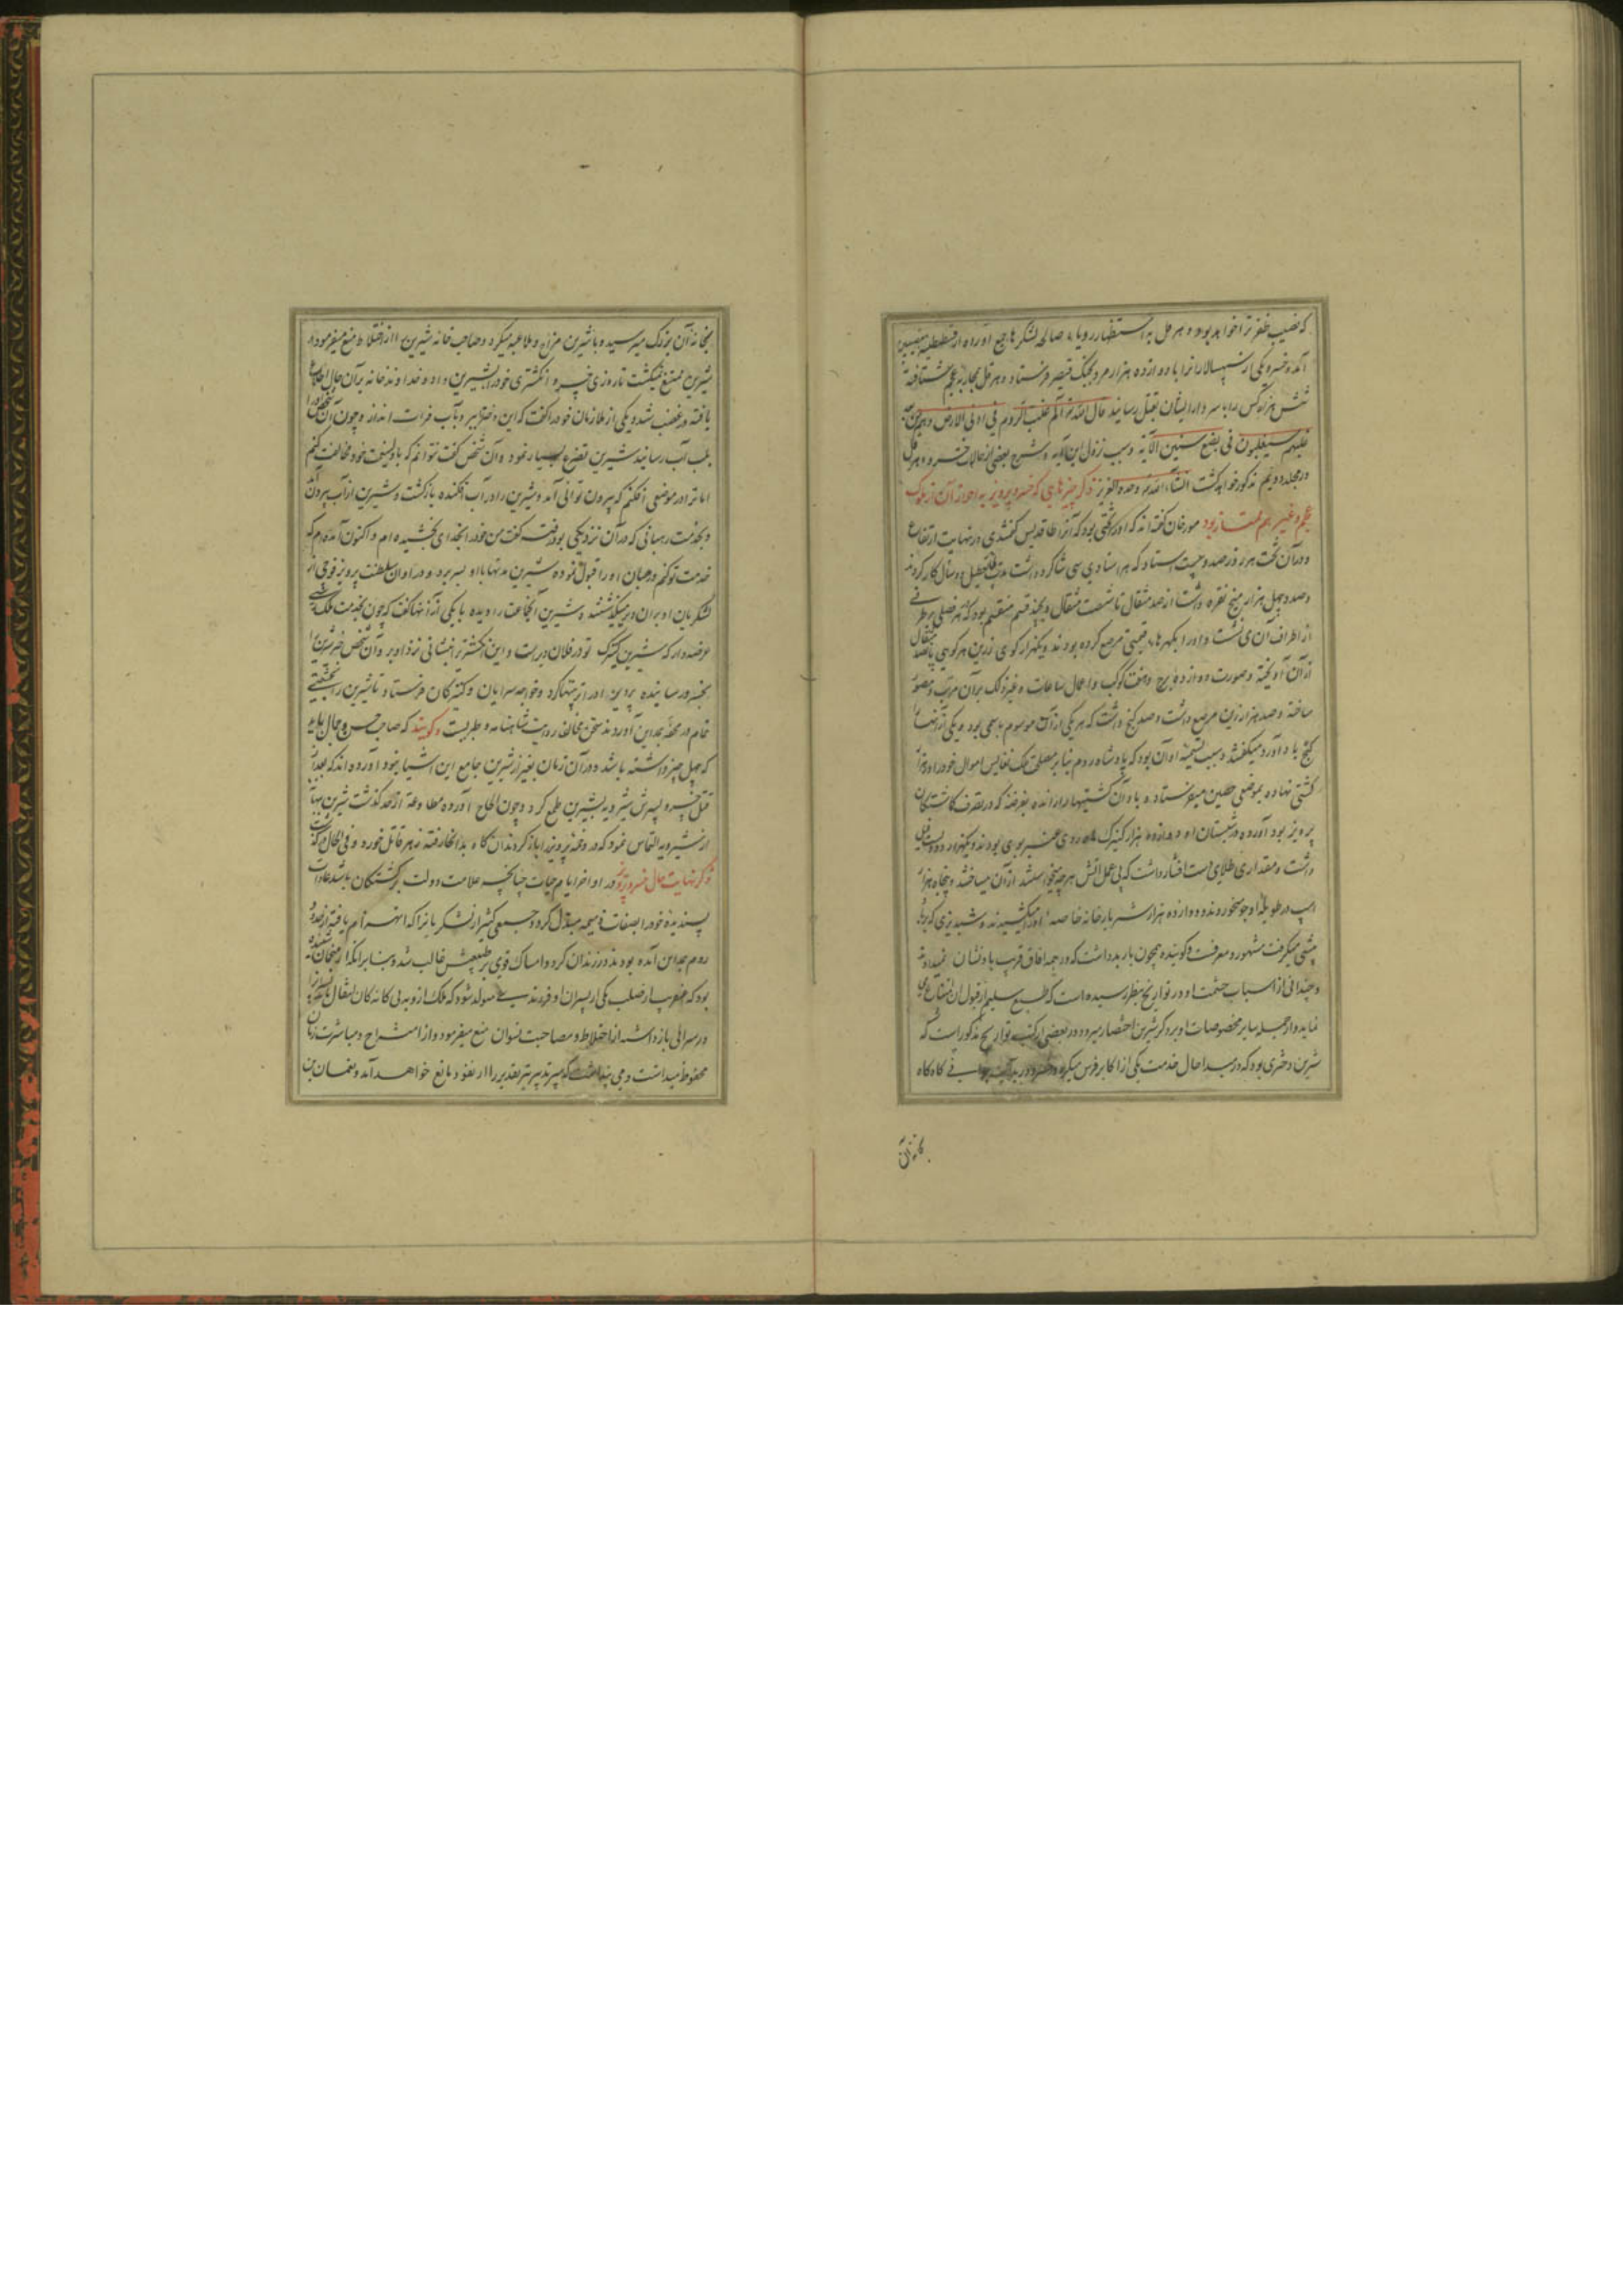 که نصیب ظفر ترا خواهد بود و هرقل به استظهار رویاء صالحه لشکرها جمع آورده از قسطنطنیه بنصیبین
آمد و خسرو یکی از سپهسالارانرا با دوازده هزار مرد بجنگ قیصر فرستاد و هرقل بمحاربه عجم شتافته
شش هزار کس را با سردار ایشان بقتل رسانید قال الله تع الم غلبت الروم فی ادنی الارض و هم من بعد
غلبهم سیغلبون فی بضع سنین الآیه و سبب نزول این آیه و شرح بعضی از حالات خسرو و هرقل
در مجلد دویم مذکور خواهد گشت انشاء الله تع وحده العزیز ذکر چیزهای که خسرو پرویز به اهراز آن از ملوک
عجم و غیرهم ممتاز بود مورخان گفته اند که او را تختی بود که آنرا طاقدیس گفتندی در نهایت ارتفاع
و در آن تخت هر روز صد و بیست استاد که هر استادی سی شاگرد داشت مدت دو سال کار کردند
و صد و چهل هزار میخ نقره داشت از صد مثقال تا شصت مثقال و بچند قسم منقسم بود که هر فصلی بر طرفی
از اطراف آن می نشست و او را بگهرهاء قیمتی مرصع کرده بودند و یکهزار کوی زرین هر کوهی پانصد مثقال
از آن آویخته و صورت دوازده برج و هفت کوکب و اعمال ساعات و غیر ذلک بر آن مرتب و مصور
ساخته و صد هزار زین مرصع داشت و صد گنج داشت که هر یکی از آن موسوم باسمی بود و یکی از آنها را
گنج باد آورد میگفتند و سبب تسمیه او آن بود که پادشاه روم بنابر مصلحتی ملک نفایس اموال خود را در
کشتی نهاده بموضعی حصین میفرستاد و باد آن کشتیها را رانده بفرضه که در تصرف گماشتگان
پرویز بود آورده در شبستان او دوازده هزار کنیزک ماه روی عنبر بوی بودند و یکهزار و دویست فیل
داشت و مقداری طلای دست افشار داشت که بی عمل آتش هر چه میخواستند از آن میساختند و پنجاه هزار
اسپ در طویله او جو میخوردند و دوازده هزار شتر بارخانه خاصه او را میکشیدند و شبدیزی که بر باد
پیشی میگرفت مشهور و معرفت و گوینده همچون باربد داشت که در همه آفاق قرب باو نشان نمیدادند
و چندانی از اسباب حشمت او در تواریخ بنظر رسیده است که طبع سلیم از قبول آن امتناع می
نماید و از جمله سایر مخصوصات او بر ذکر شیرین اختصار میرود در بعضی از کتب تواریخ مذکور است که
شیرین دختری بود که در مبدا حال خدمت یکی از اکابر فرس میکرد و خسرو در بدایت جوانی گاه گاه
بخانه آن
بخانه آن بزرگ میرسید و با شیرین مزاح و ملاعبه میکرد و صاحب خانه شیرین را از اختلاط منع میفرمود و
شیرین ممتنع نمیگشت تا روزی خسرو انگشتری خود را بشیرین داد و خداوند خانه بر آن حال اطلاع
یافته در غضب شد و یکی از ملازمان خود را گفت که این دختر ببر و بآب فرات انداز و چون آن شخص او را
بلب آب رسانید شیرین تضرع بسیار نمود و آن شخص گفت نتوانم که با ولینعمت خود مخالفت کنم
اما ترا در موضعی افکنم که بیرون توانی آمد و شیرین را در آب افکنده بازگشت و شیرین از آب بیرون آمد
و بخدمت رهبانی که در آن نزدیکی بود رفت گفت من خود را بخدای بخشیده ام و اکنون آمده ام که
خدمت تو کنم و رهبان او را قبول نموده شیرین مدتها با او بسر برد و در اوان سلطنت پرویز فوجی از
لشکریان او بر آن دیر میگذشتند و شیرین آنجماعت را دیده با یکی از آنها گفت که چون بخدمت ملک رسی
عرضه دار که شیرین کنیزک تو در فلان دیر است و این انگشتر بنشانی نزد او بر و آن شخص خبر شیرین را
بخسرو رسانیده پرویز او را تربیتها کرد و خواجه سرایان و کنیزکان فرستاد تا شیرین را بتجملی
تمام در محفه بمداین آوردند سخن مخالف روایت شاهنامه و طبریست و گویند که صاحب حسن و جمال باید
که چهل چیز داشته باشد و در آن زمان بغیر از شیرین جامع این اشیا نبود آورده اند که بعد از
قتل خسرو پسرش شیرویه بشیرین طمع کرد و چون الحاح آورده مطاوعه از حد گذشت شیرین بهانه
از شیرویه التماس نمود که در دخمه پرویز را باز کردند آن گاه بدانجا رفته زهر قاتل خورد و فی الحال درگذشت
ذکر نهایت حال خسرو پرویز در اواخر ایام حیات چنانچه علامت دولت برگشتگان باشد عادات
پسندیده خود را بصفات ذمیمه مبدل کرد و جمعی کثیر از لشکریانرا که انهزام یافته از حدود
روم بمداین آمده بودند در زندان کرد و امساک قوی بر طبعش غالب شد و بنابر آنکه از منجمان شنیده
بود که عنقریب از صلب یکی از پسران او فرزندی متولد شود که ملک از وبه بی گانه گان انتقال یابد پسرانرا
در سرائی بازداشته از اختلاط و مصاحبت نسوان منع میفرمود و از امتزاج و مباشرت زنان
محفوظ میداشت و می پنداشت که سپر تدبیر تیر تقدیر را از نفوذ مانع خواهد آمد و نعمان بن